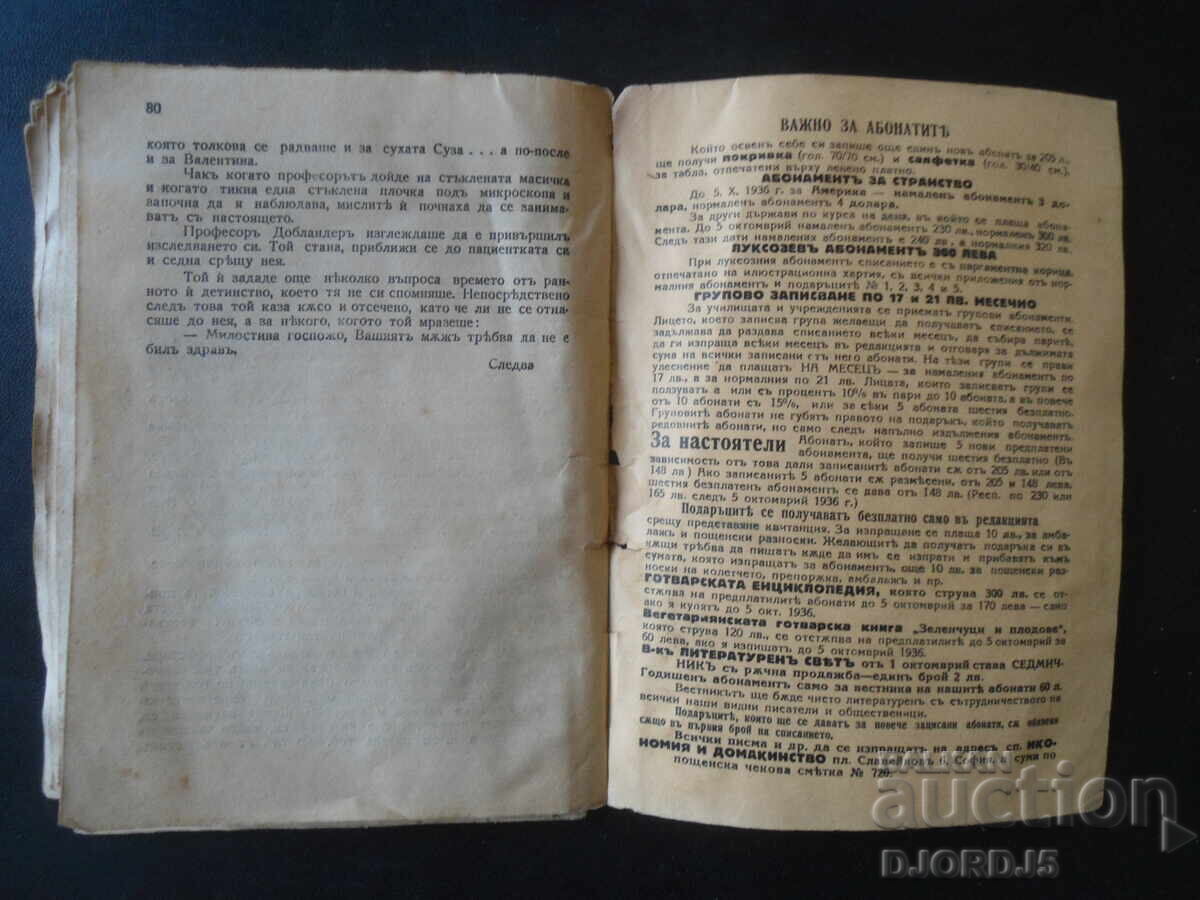 80
която толкова се радваше и за сухата Суза . . . а по-после
и за Валентина.
Чакъ когато професорътъ дойде на стъклената масичка
и когато тикна една стъклена плочка подъ микроскопа и
започна да я наблюдава, мислитѣ ѝ почнаха да се занима-
ватъ съ настоящето.
Професоръ Добландеръ изглеждаше да е привършилъ
изследването си. Той стана, приближи се до пациентката си
и седна срѣщу нея.
Той ѝ зададе още нѣколко въпроса времето отъ ран-
ното ѝ детинство, което тя не си спомняше. Непосрѣдствено
следъ това той каза кѫсо и отсечено, като че ли не се отна-
сяше до нея, а за нѣкого, когото той мразеше:
— Милостива госпожо, Вашиятъ мѫжъ трѣбва да не е
билъ здравъ.
Следва
ВАЖНО ЗА АБОНАТИТѢ
Който освенъ себе си запише още единъ новъ абонатъ за 205 л.
ще получи покривка (гол. 70/70 см.) и салфетка (гол. 30/40 см.),
за табла, отпечатени върху ленено платно.
АБОНАМЕНТЪ ЗА СТРАНСТВО
До 5. X. 1936 г. за Америка — намаленъ абонаментъ 3 до-
лара, нормаленъ абонаментъ 4 долара.
За други държави по курса на деня, въ който се плаща абона-
мента. До 5 октомврий намаленъ абонаментъ 230 лв., нормаленъ 300 лв.
Следъ тази дати намаления абонаментъ е 240 лв., а нормалния 320 лв.
ЛУКСОЗЕВЪ АБОНАМЕНТЪ 300 ЛЕВА
При луксозния абонаментъ списанието е съ паргаментна корица,
отпечатано на илюстрационна хартия, съ всички приложения отъ нор-
малния абонаментъ и подаръцитѣ № 1, 2, 3, 4 и 5.
ГРУПОВО ЗАПИСВАНЕ ПО 17 и 21 ЛВ. МЕСЕЧНО
За училищата и учрежденията се приематъ групови абонаменти.
Лицето, което записва група желаещи да получаватъ списанието, се
задължава да раздава списанието всѣки месецъ, да събира паритѣ,
да ги изпраща всѣки месецъ въ редакцията и отговаря за дължимата
сума на всички записани отъ него абонати. На тѣзи групи се прави
улеснение да плащатъ НА МЕСЕЦЪ — за намаления абонаментъ по
17 лв., а за нормалния по 21 лв. Лицата, които записватъ групи се
ползуватъ а или съ процентъ 10% въ пари до 10 абоната, а въ повече
отъ 10 абонати съ 15%, или за сѣки 5 абоната шестия безплатно.
Груповитѣ абонати не губятъ правото на подаръкъ, който получаватъ
редовнитѣ абонати, но само следъ напълно издължения абонаментъ.
За настоятели Абонатъ, който запише 5 нови предплатени
абонамента, ще получи шестия безплатно (Въ
зависимость отъ това дали записанитѣ абонати сѫ отъ 205 лв. или отъ
148 лв.) Ако записанитѣ 5 абонати сѫ размѣсени, отъ 205 и 148 лева,
шестия безплатенъ абонаментъ се дава отъ 148 лв. (Респ. по 230 или
165 лв. следъ 5 октомврий 1936 г.)
Подаръцитѣ се получаватъ безплатно само въ редакцията
срещу представяне квитанция. За изпращане се плаща 10 лв., за амба-
лажъ и пощенски разноски. Желающитѣ да получатъ подаръка си въ
кѫщи трѣбва да пишатъ кѫде да имъ се изпрати и прибавятъ къмъ
сумата, която изпращатъ за абонаментъ, още 10 лв. за пощенски раз-
носки на колетчето, препоржка, амбалажъ и пр.
ГОТВАРСКАТА ЕНЦИКЛОПЕДИЯ, която струва 300 лв. се от-
стѫпва на предплатилитѣ абонати до 5 октомврий за 170 лева — само
ако я купятъ до 5 окт. 1936.
Вегетариянската готварска книга „Зеленчуци и плодове“,
която струва 120 лв., се отстѫпва на предплатилитѣ до 5 октомврий за
60 лева, ако я изпишатъ до 5 октомврий 1936.
В-къ ЛИТЕРАТУРЕНЪ СВѢТЪ отъ 1 октомврий става СЕДМИЧ-
НИКЪ съ рѫчна продажба—единъ брой 2 лв.
Годишенъ абонаментъ само за вестника на нашитѣ абонати 60 л.
Вестникътъ ще бѫде чисто литературенъ съ сътрудничеството на
всички наши видни писатели и общественици.
Подаръцитѣ, които ще се даватъ за повече записани абонати, сѫ обявени
сѫщо въ първия брой на списанието.
Всички писма и др. да се изпращатъ на адресъ сп. ИКО-
НОМИЯ И ДОМАКИНСТВО пл. Славейковъ 6, София, а суми по
пощенска чекова смѣтка № 720.
BALKAN
auction
DJORDJ5